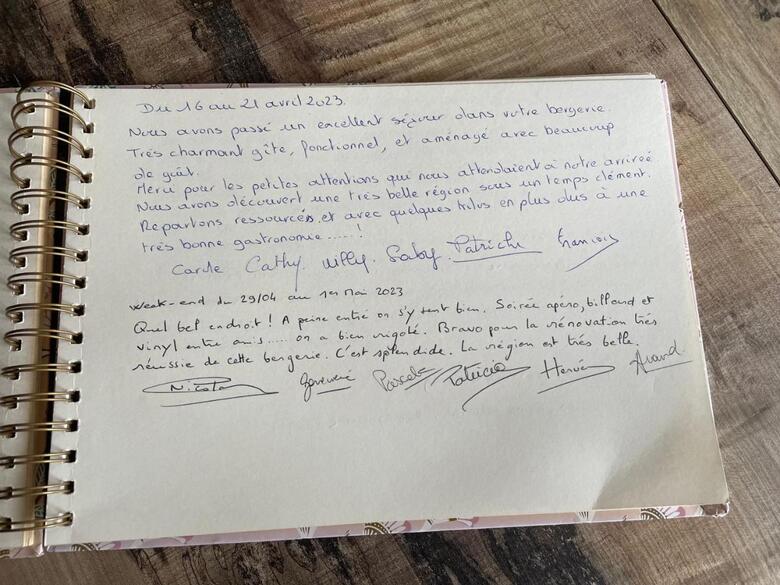 Du 16 au 21 avril 2023.
Nous avons passé un excellent séjour dans votre bergerie.
Très charmant gîte, fonctionnel, et aménagé avec beaucoup
de goût.
Merci pour les petites attentions qui nous attendaient à notre arrivée
Nous avons découvert une très belle région sous un temps clément.
Repartons ressourcés, et avec quelques kilos en plus dus à une
très bonne gastronomie .....!
Carole Cathy Willy. Gaby. Patrick François
Week-end du 29/04 au 1er Mai 2023
Quel bel endroit ! A peine entré on s'y sent bien. Soirée apéro, billard et
vinyl entre amis..... on a bien rigolé. Bravo pour la rénovation très
réussie de cette bergerie. C'est splendide. La région est très belle.
Patricia Hervé